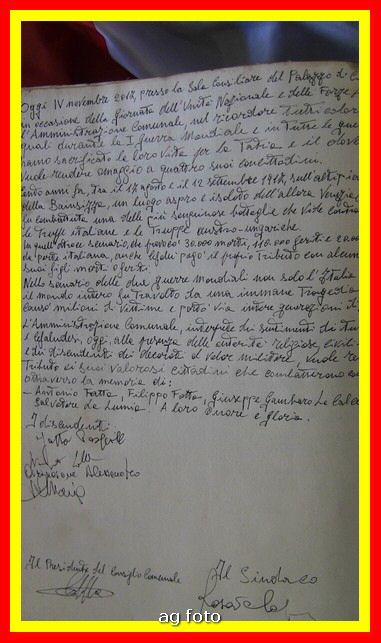 Oggi IV novembre 2017, presso la Sala Consiliare del Palazzo di
in occasione della giornata dell'Unità Nazionale e delle Forze
l'Amministrazione Comunale, nel ricordare tutti coloro
quali durante la I guerra Mondiale e in tutte le
hanno sacrificato le loro vite per la Patria e il
vuole rendere omaggio a quattro suoi concittadini.
cento anni fa, tra il 17 agosto e il 12 settembre 1917, sull'altipia
della Bainsizza, un luogo aspro e isolato dell'allora Venezia
fu combattuta una delle più sanguinose battaglie che vide
le truppe italiane e le truppe austro-ungariche.
In quell'atroce scenario, che provocò 30.000 morti, 110.000 feriti e
da parte italiana, anche Cefalù pagò il proprio tributo con alcuni
suoi figli morti o feriti.
Nello scenario delle due guerre Mondiali non solo l'Italia
il mondo intero fu travolto da una immane tragedia
causò milioni di vittime e portò via intere generazioni di
L'Amministrazione Comunale, interprete dei sentimenti di
i cefaludesi, oggi, alla presenza delle autorità religiose, civili
e dei discendenti dei decorati al valor militare, vuole
tributo ai suoi valorosi cittadini che combatterono
attraverso la memoria di:
- Antonio Fatta, Filippo Fatta, Giuseppe Gambaro
Salvatore La Lumia. A loro onore e gloria.
I discendenti
Fatta
Alessandro
Il Presidente del Consiglio Comunale
Il Sindaco
ag foto